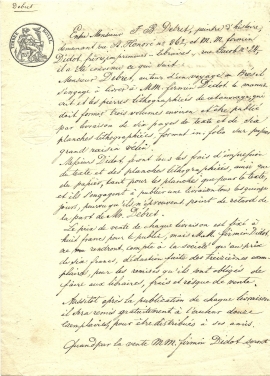 Debret
Entre Monsieur J. B. Debret, peintre d'histoire,
demeurant rue St. Honoré nº 267, et M.M. firmin
Didot, frères, imprimeurs-libraires, rue Jacob nº 24,
il a été convenu ce qui suit
Monsieur Debret, auteur d'un voyage au Brésil
s'engage à livrer à MM. firmin Didot le manus
crit et les pierres lithographiées de cet ouvrage, qui
doit former trois volumes environ, et être publié
par livraison de six pages de texte et de six
planches lithographiées, format in-folio sur papier
grand raisin vélin.
Messieurs Didot feront tous les frais d'impression
du texte et des planches lithographiées, ainsi que
du papier, tant pour les planches que pour le texte,
et ils s'engagent à publier une livraison tous les quinze
jours, pourvu qu'ils n'éprouvent point de retard de
la part de Mr. Debret.
Le prix de vente de chaque livraison est fixé à
huit francs pour le public, mais MM. firmin Didot
ne rendront compte à la société qu'au prix
de six francs, déduction faite des treizièmes exem
plaires, pour les remises qu'ils sont obligés de
faire aux libraires, frais et risque de vente.
Aussitôt après la publication de chaque livraison
il sera remis gratuitement à l'auteur douze
exemplaires, pour être distribués à ses amis.
Quand par la vente M.M. firmin Didot seront